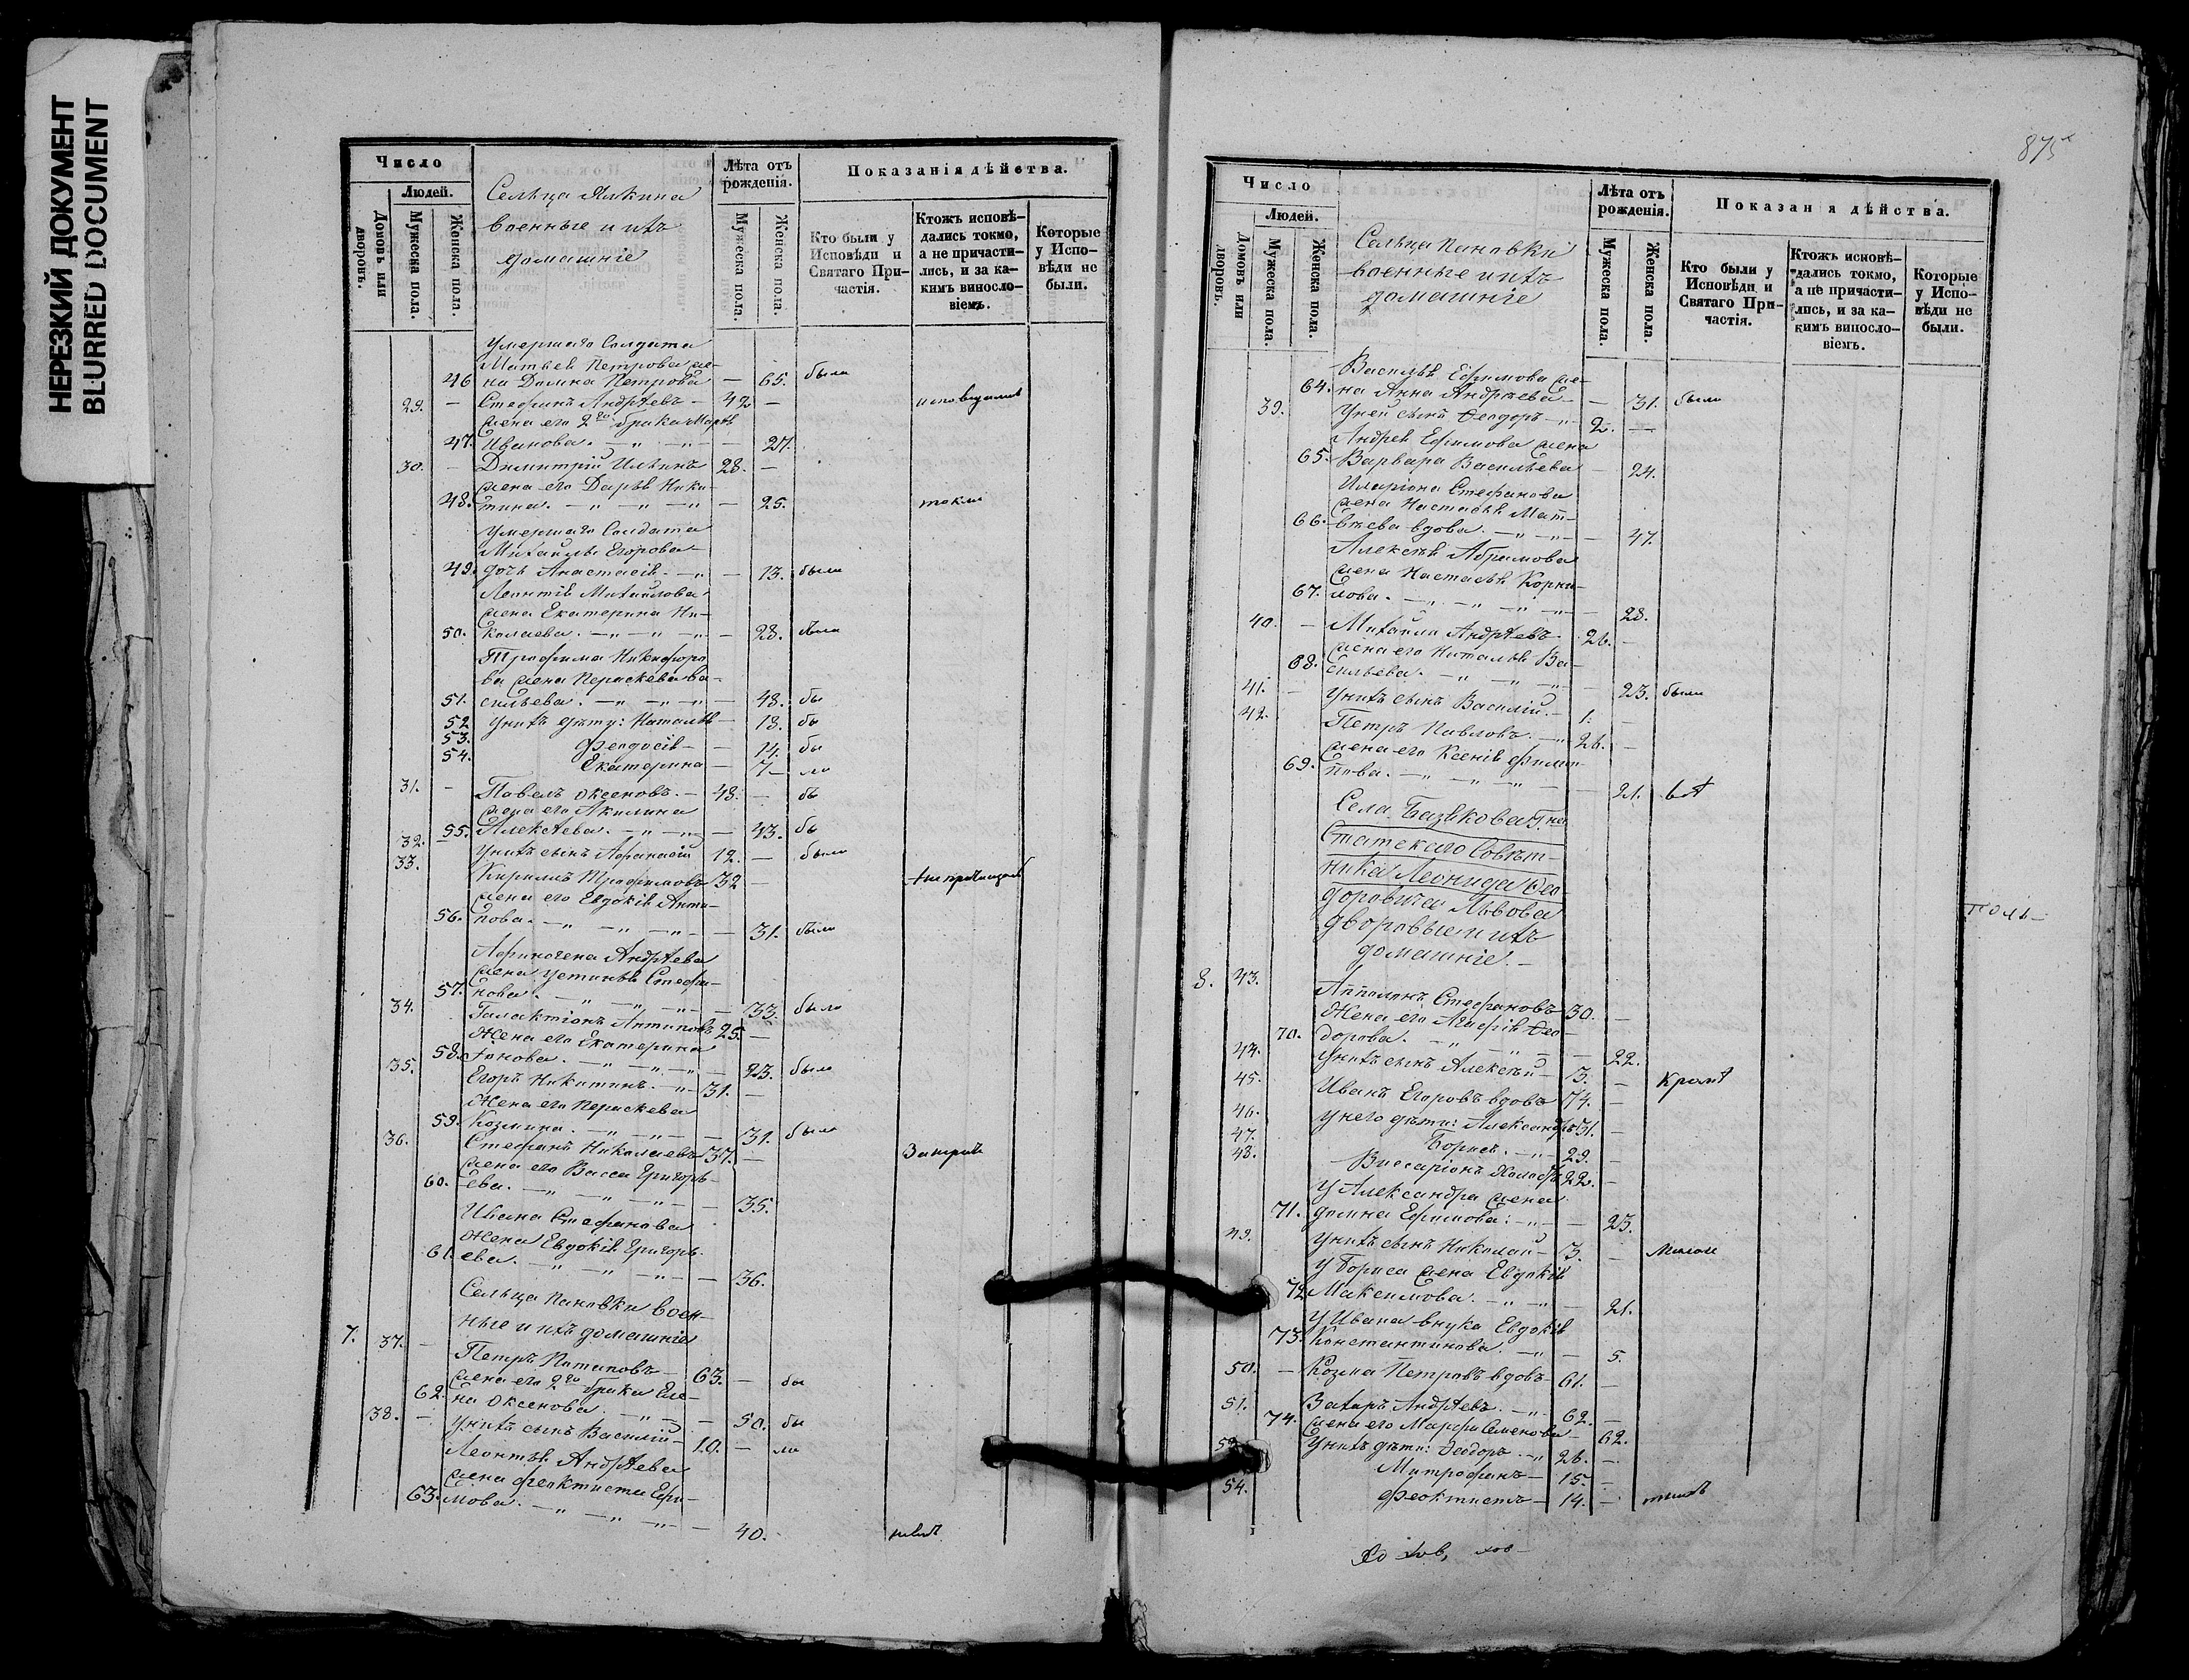 НЕРЕЗКИЙ ДОКУМЕНТ
BLURRED DOCUMENT
Число
Людей.
Домовъ или дворовъ.
Мужеска пола.
Женска пола.
Сельца Якина
военные и ихъ
домашніе
Лѣта отъ рожденія.
Мужеска пола.
Женска пола.
Показанія дѣйства.
Кто были у Исповѣди и Святаго Причастія.
Ктожъ исповѣдались токмо, а не причастились, и за какимъ винословіемъ.
Которые у Исповѣди не были.
умершаго Солдата
Матвея Петрова же-
46 на Домна Петрова — 65. была
29. — Стефанъ Андреевъ — 42 —
жена его 2го брака Марѳа
47. Иванова. — 27.
30. — Димитрій Ильинъ 28. —
жена его Дарья Ники-
48. тина. — 25.
умершаго Солдата
Михаила Егорова
49. дочь Анастасія — 13. была
Леонтія Михайлова
жена Екатерина Ни-
50. колаева. — 28. была
Трофима Никифоро
ва жена Параскева Ва-
51. сильева. — 48. бы
52 у нихъ дѣти: Наталья — 18. бы
53. Феодосія — 14. бы
54. Екатерина — 7 — ли
31. — Павелъ Оксеновъ. — 48. — бы
жена его Акилина
55. Алексеева. — 43. бы
32. — у нихъ сынъ Афанасій 12. — были
33. Кирилъ Трофимовъ 32 —
жена его Евдокія Анти-
56. пова. — 31. была
Афиногена Андреева
жена Устинья Стефа-
57. нова. — 33. была
34. Галактіонъ Антиповъ 25. —
Жена его Екатерина
58. Іонова. — 23. была
35. Егоръ Никитинъ. — 31. —
Жена его Параскева
59. Козмина. — 31. была
36. Стефанъ Николаевъ 37. —
жена его Васса Григорь-
60. ева. — 35.
Ивана Стефанова
жена Евдокія Григорь-
61. ева. — 36.
Сельца Пановки воен-
ные и ихъ домашніе
7. 37. — Петръ Потаповъ — 63. — бы
жена его 2го брака Еле-
62. на Оксенова. — 50. бы
38. — у нихъ сынъ Василій — 10. — ли
Леонтья Андреева
жена Феоктиста Ефи-
63. мова. — 40.
875
Число
Людей.
Домовъ или дворовъ.
Мужеска пола.
Женска пола.
Сельца Пановки
военные и ихъ
домашніе
Лѣта отъ рожденія.
Мужеска пола.
Женска пола
Показан я дѣйства.
Кто были у Исповѣди и Святаго Причастія.
Ктожъ исповѣдались токмо, а не причастились, и за какимъ винословіемъ.
Которые у Исповѣди не были.
Василья Ефимова же-
64. на Анна Андреева — 31. была
39. у ней сынъ Ѳеодоръ — 2. —
Андрея Ефимова жена
65. Варвара Васильева — 24.
Иларіона Стефанова
жена Настасья Мат-
66. вѣева вдова. — 47.
Алексѣя Абрамова
жена Настасья Корни-
67. лова. — 28.
40. — Михаила Андреевъ — 26. —
жена его Наталья Ва-
68. сильева. — 23. были
41. — у нихъ сынъ Василій. — 1. —
42. Петръ Павловъ. — 26. —
жена его Ксенія Филип-
69. пова. — 21.
Села Базыкова Гна
Статскаго Совѣт-
ника Леонида Ѳео-
доровича Львова
дворовые и ихъ
домашніе. —
8. 43. Апполонъ Стефановъ 30. —
Жена его Агафія Ѳео-
70. дорова. — 22.
44. у нихъ сынъ Алексѣй — 3. — Кромѣ
45. Иванъ Егоровъ вдовъ 74. —
46. у него дѣти: Александръ 31. —
47. Борисъ. — 29. —
48. Виссаріонъ Холостъ 22. —
у Александра жена
71. Домна Ефимова: — 23.
49. у нихъ сынъ Николай — 3. —
у Бориса жена Евдокія
72. Максимова. — 21.
у Ивана внука Евдокія
73. Константинова. — 5.
50. — Козма Петровъ вдовъ 61. —
51. Захаръ Андреевъ. — 62. —
74. жена его Марфа Семенова — 62.
у нихъ дѣти: Ѳеодоръ. — 26. —
Митрофанъ — 15. —
54. Феоктистъ — 14. —